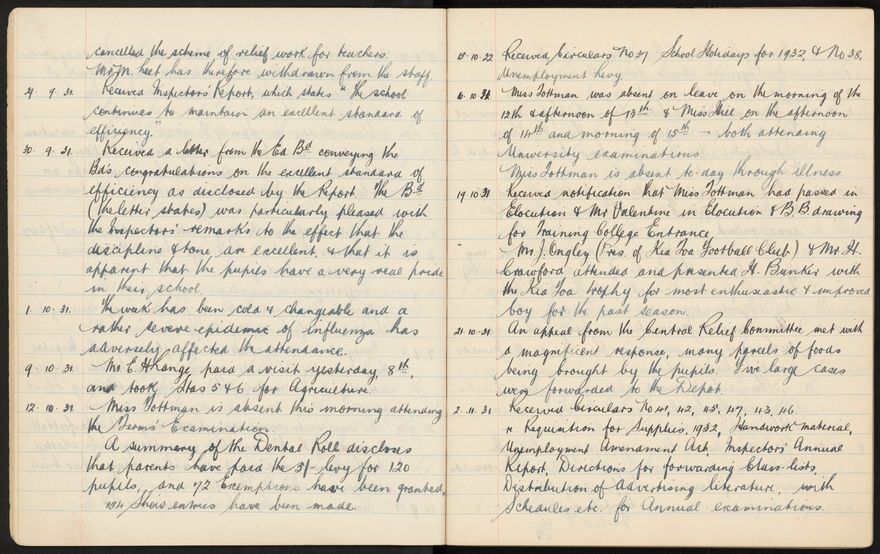 cancelled the scheme of relief work for teachers.
Mr. M. Leet has therefore withdrawn from the staff.
29. 9. 31. Received Inspectors' Report, which states "The school
continues to maintain an excellent standard of
efficiency."
30. 9. 31. Received a letter from the Ed. Bd. conveying the
Bd's congratulations on the excellent standard of
efficiency as disclosed by the Report. The Bd
(the letter states) was particularly pleased with
the Inspectors' remarks to the effect that the
discipline & tone, are excellent, & that it is
apparent that the pupils have a very real pride
in their school
1. 10. 31. The week has been cold & changeable and a
rather severe epidemic of influenza has
adversely affected the attendance.
9. 10. 31 Mr. E. H. Lange paid a visit yesterday, 8th,
and took Stds 5 & 6 for Agriculture.
12. 10. 31 Miss Tottman is absent this morning attending
the Examination
A summary of the Dental Roll discloses
that parents have paid the 5/- levy for 120
pupils, and 72 Exemptions have been granted.
154 Show entries have been made.
15. 10. 22 Received Circulars No 37 School Holidays for 1932, & No 38,
Unemployment Levy
16. 10. 31. Miss Tottman was absent on leave, on the morning of the
12th & afternoon of 13th & Miss Hill on the afternoon
of 14th and morning of 15th – both attending
University examinations
Miss Tottman is absent to-day through illness.
19 10 31 Received notification that Miss Tottman had passed in
Elocution & Mr Valentine in Elocution & B.B. drawing
for Training College Entrance.
- Mr. J. Ongley (Pres. of Kia Toa Football Club) & Mr. H.
Crawford attended and presented H. Banker with
the Kia Toa trophy for most enthusiastic & improved
boy for the past season.
21. 10. 31. An appeal from the Central Relief Committee met with
a magnificent response, many parcels of foods
being brought by the pupils. Five large cases
were forwarded to the Depot.
2. 11. 31 Received Circulars No 41, 42, 45, 47, 43, 46
r. Requisition for Supplies, 1932, Handwork material,
Unemployment Amendment Act, Inspectors' Annual
Report, Directions for forwarding Class-lists,
Distribution of Advertising literature, with
Schedules etc. for Annual examinations.